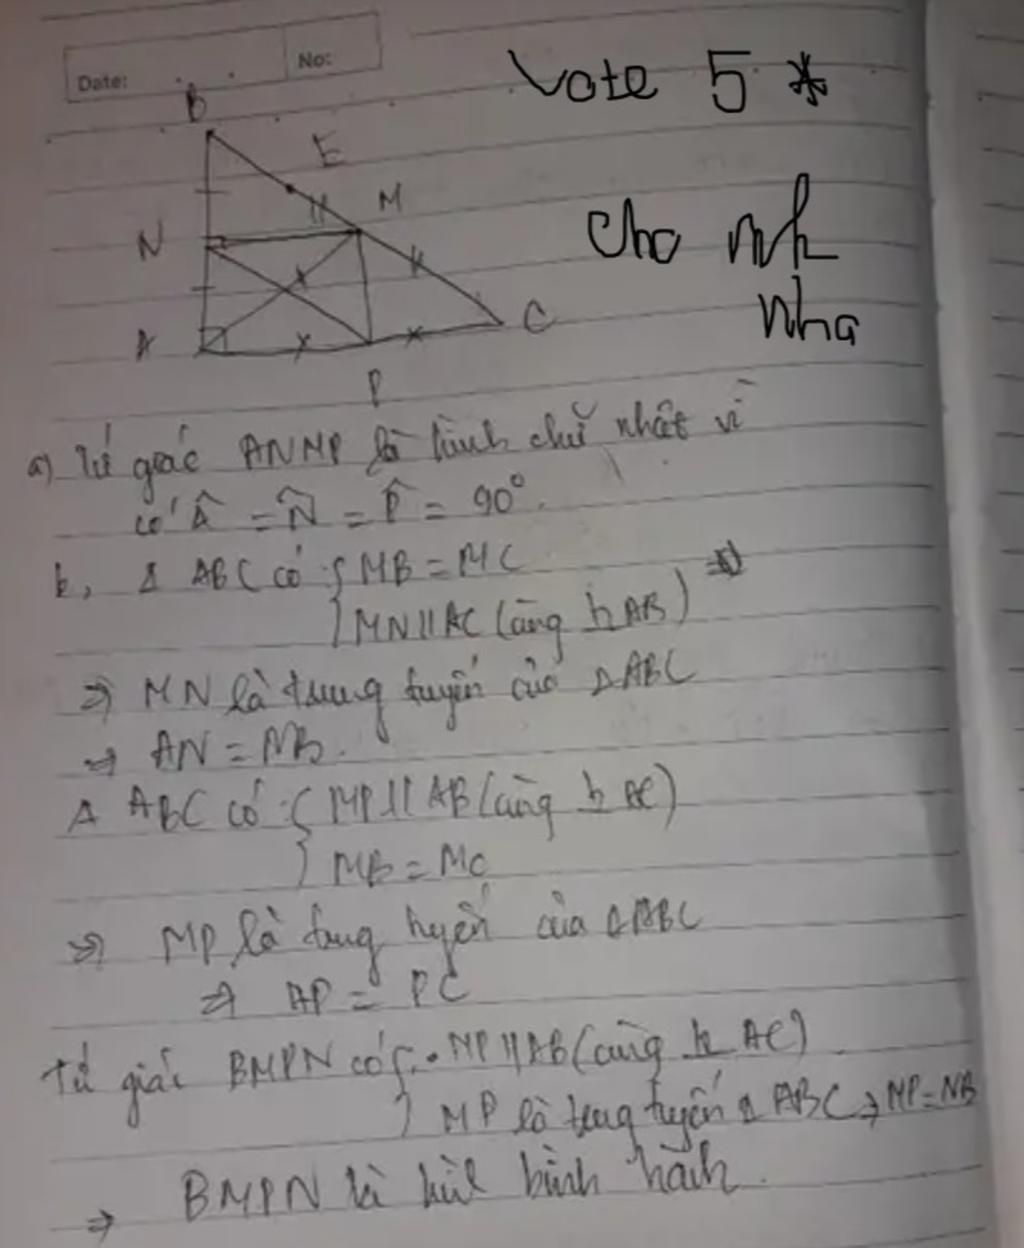 Date:
No:
Vote 5 *
cho mk
nha
B
E
M
N
C
A
P
a) Tứ giác ANMP là hình chữ nhật vì
có Â = N̂ = P̂ = 90°.
b, Δ ABC có { MB = MC
MN // AC (cùng ⊥ AB)
=> MN là trung tuyến của ΔABC
=> AN = NB.
Δ ABC có { MP // AB (cùng ⊥ AC)
MB = MC
=> MP là trung tuyến của ΔABC
=> AP = PC
Tứ giác BMPN có { • MP // AB (cùng ⊥ AC)
MP là trung tuyến Δ ABC => MP = NB
=> BMPN là hình bình hành.